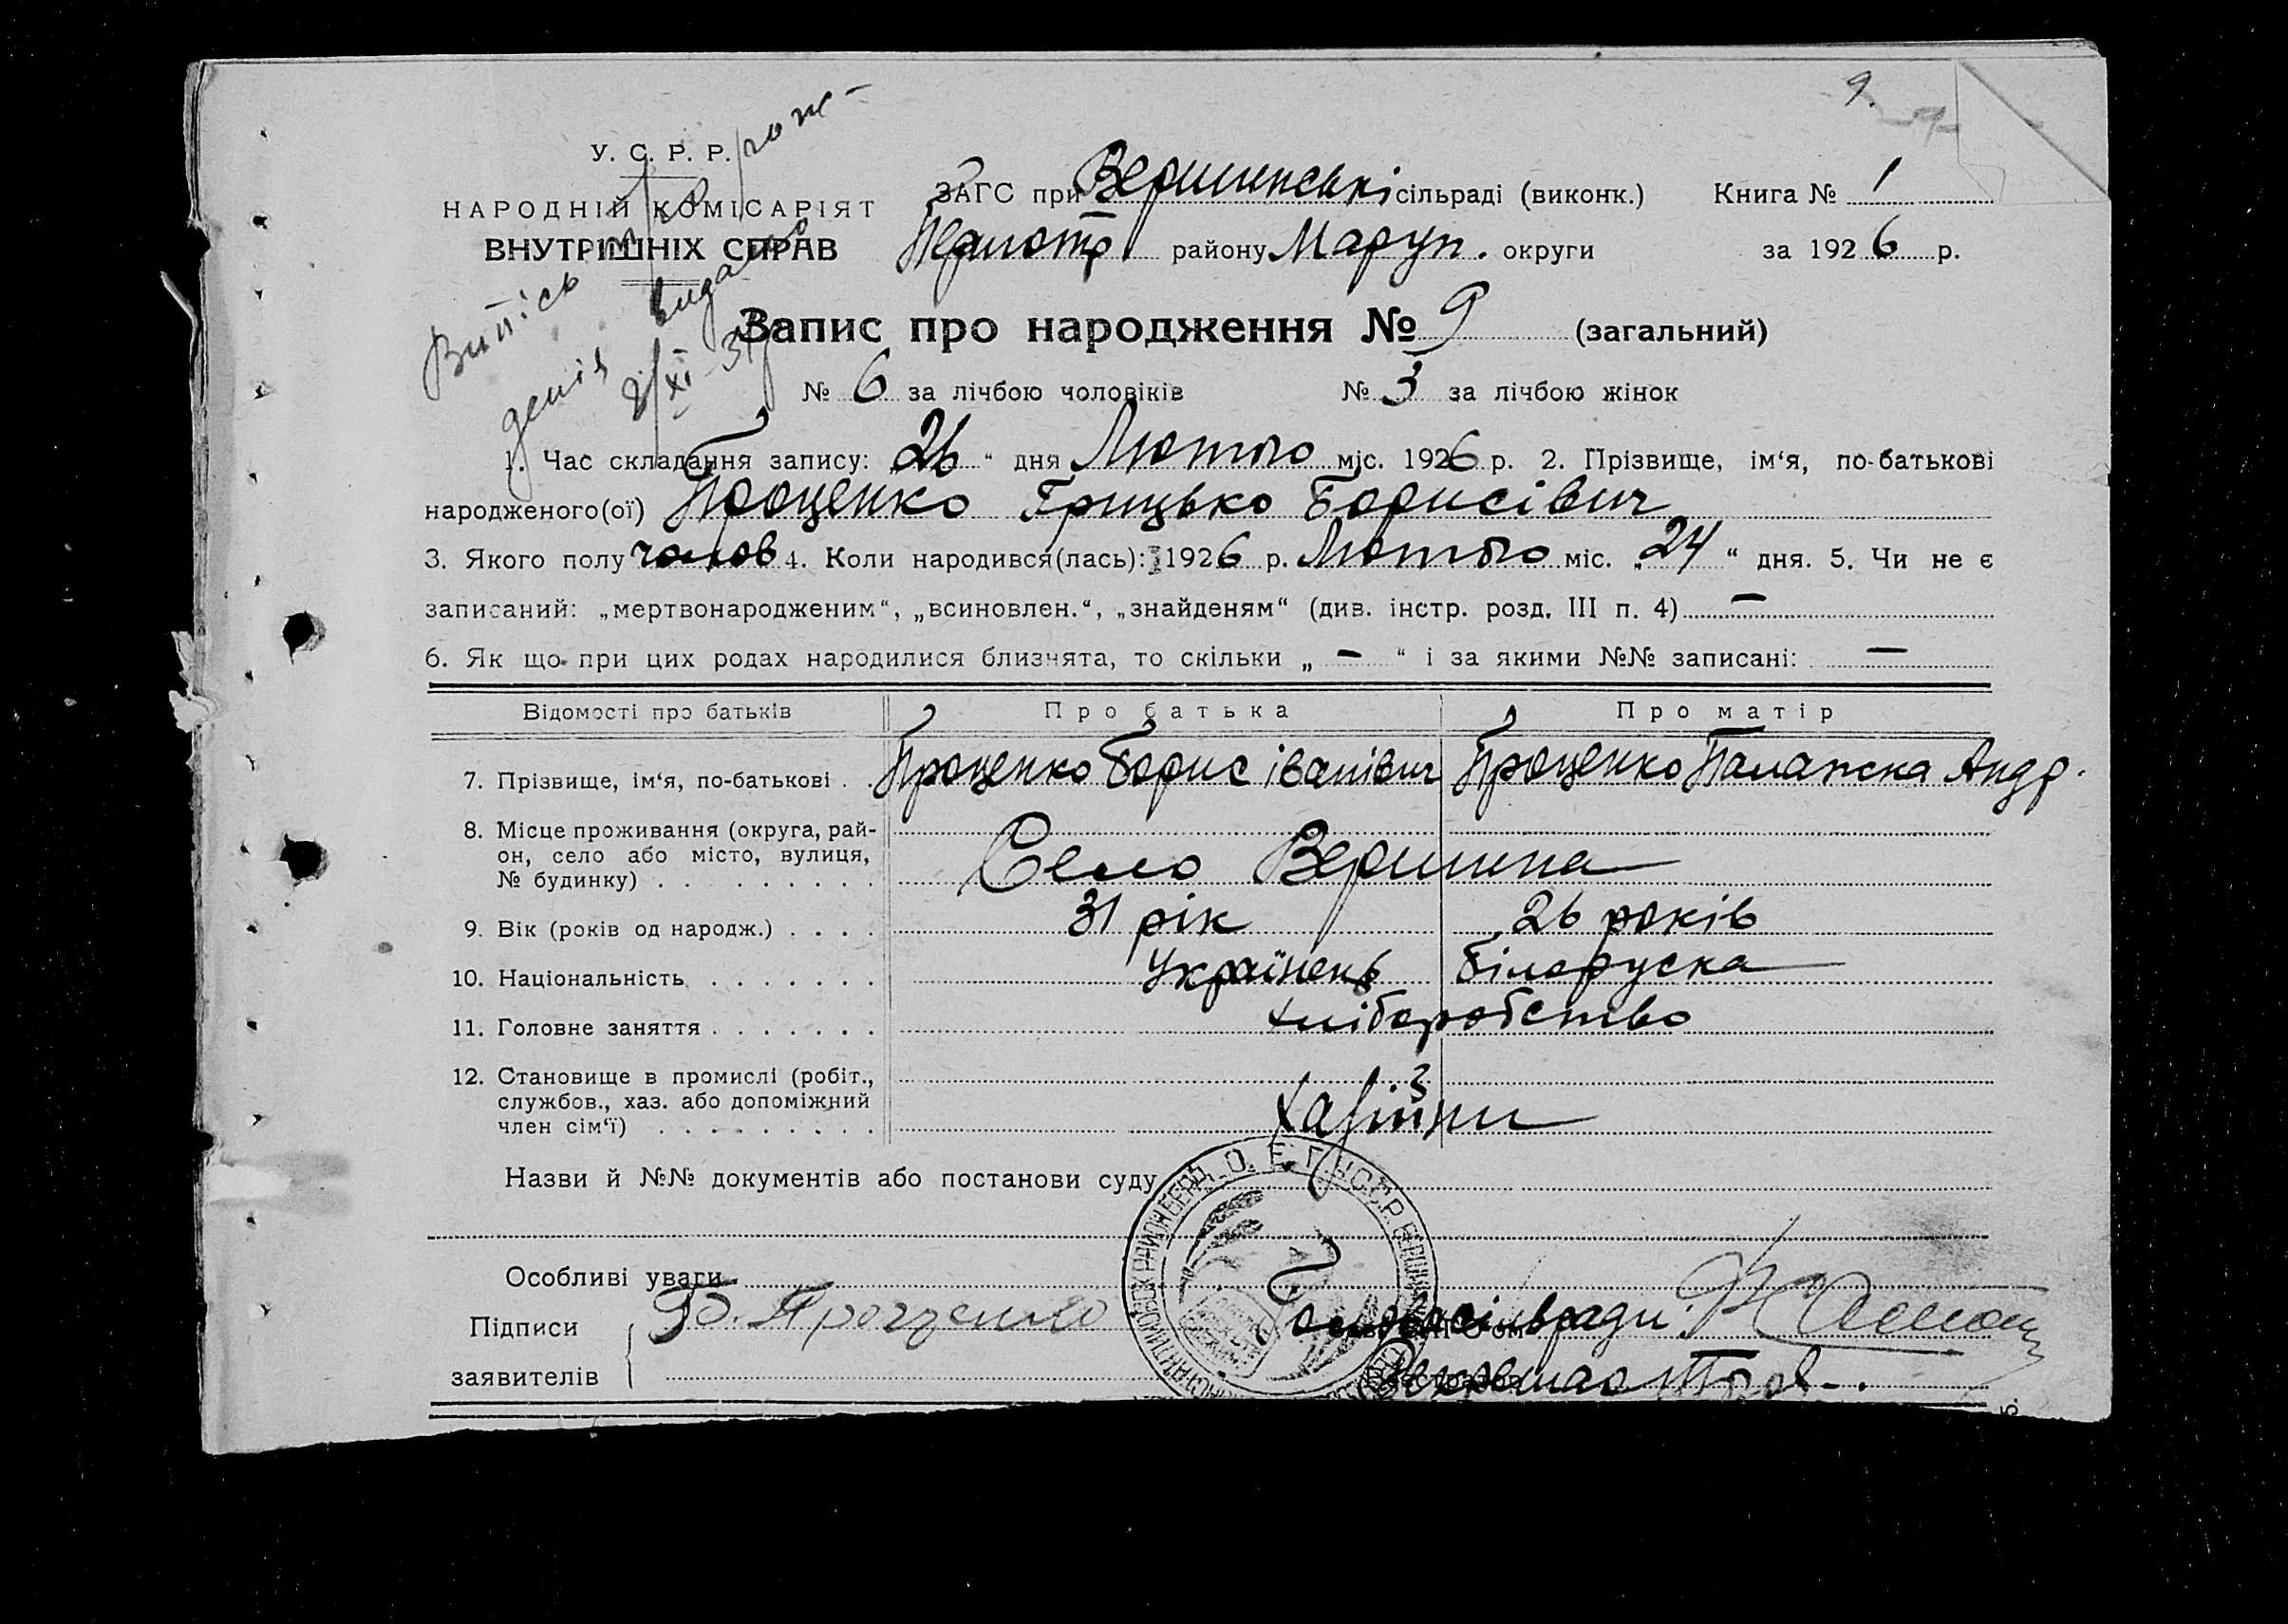 9.
У. С. Р. Р.
НАРОДНІЙ КОМІСАРІЯТ
ВНУТРІШНІХ СПРАВ
Випісь про рож-
деніе видано
8/XI-31
ЗАГС при Вершинські сільраді (виконк.) Книга № 1
району Маруп. округи за 1926 р.
Запис про народження № 9 (загальний)
№ 6 за лічбою чоловіків № 3 за лічбою жінок
1. Час складання запису: „26“ дня Лютого міс. 1926 р. 2. Прізвище, ім‘я, по-батькові
народженого(ої) Проценко Грицько Борисівич
3. Якого полу чолов 4. Коли народився(лась): 1926 р. Лютого міс. „24“ дня. 5. Чи не є
записаний: „мертвонародженим“, „всиновлен.“, „знайденям“ (див. інстр. розд. III п. 4) —
6. Як що при цих родах народилися близнята, то скільки „ — “ і за якими №№ записані: —
Відомості про батьків Про батька Про матір
7. Прізвище, ім‘я, по-батькові . . Проценко Борис Іванівич Проценко Палажка Андр.
8. Місце проживання (округа, рай-
он, село або місто, вулиця,
№ будинку) . . . . . . . . Село Вершина
9. Вік (років од народж.) . . . . 31 рік 26 років
10. Національність . . . . . . . Українець Білоруска
11. Головне заняття . . . . . . . хліборобство
12. Становище в промислі (робіт.,
службов., хаз. або допоміжний
член сім‘ї) . . . . . . . . .
Назви й №№ документів або постанови суду
Особливі уваги
Підписи Б. Проценко Голова сільради
заявителів